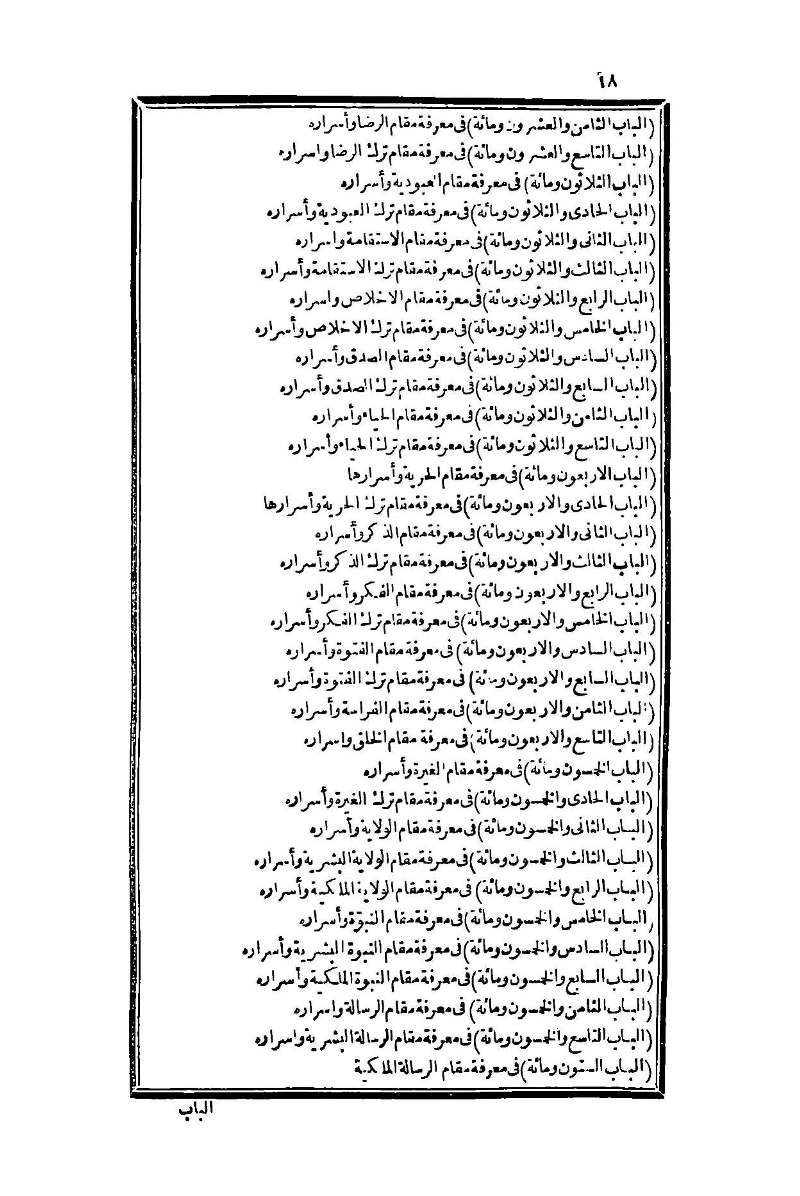 ٦٨
(الباب الثامن والعشرون ومائة) فى معرفة مقام الرضا وأسراره
(الباب التاسع والعشرون ومائة) فى معرفة مقام ترك الرضا واسراره
(الباب الثلاثون ومائة) فى معرفة مقام العبودية وأسراره
(الباب الحادى والثلاثون ومائة) فى معرفة مقام ترك العبودية وأسراره
(الباب الثانى والثلاثون ومائة) فى معرفة مقام الاستقامة واسراره
(الباب الثالث والثلاثون ومائة) فى معرفة مقام ترك الاستقامة وأسراره
(الباب الرابع والثلاثون ومائة) فى معرفة مقام الاخلاص واسراره
(الباب الخامس والثلاثون ومائة) فى معرفة مقام ترك الاخلاص وأسراره
(الباب السادس والثلاثون ومائة) فى معرفة مقام الصدق وأسراره
(الباب السابع والثلاثون ومائة) فى معرفة مقام ترك الصدق وأسراره
(الباب الثامن والثلاثون ومائة) فى معرفة مقام الحياء وأسراره
(الباب التاسع والثلاثون ومائة) فى معرفة مقام ترك الحياء وأسراره
(الباب الاربعون ومائة) فى معرفة مقام الحرية وأسرارها
(الباب الحادى والاربعون ومائة) فى معرفة مقام ترك الحرية وأسرارها
(الباب الثانى والاربعون ومائة) فى معرفة مقام الذكر وأسراره
(الباب الثالث والاربعون ومائة) فى معرفة مقام ترك الذكر وأسراره
(الباب الرابع والاربعون ومائة) فى معرفة مقام الفكر وأسراره
(الباب الخامس والاربعون ومائة) فى معرفة مقام ترك الفكر وأسراره
(الباب السادس والاربعون ومائة) فى معرفة مقام الفتوة وأسراره
(الباب السابع والاربعون ومائة) فى معرفة مقام ترك الفتوة وأسراره
(الباب الثامن والاربعون ومائة) فى معرفة مقام الفراسة وأسراره
(الباب التاسع والاربعون ومائة) فى معرفة مقام الخلق واسراره
(الباب الخمسون ومائة) فى معرفة مقام الغيرة وأسراره
(الباب الحادى والخمسون ومائة) فى معرفة مقام ترك الغيرة وأسراره
(الباب الثانى والخمسون ومائة) فى معرفة مقام الولاية وأسراره
(الباب الثالث والخمسون ومائة) فى معرفة مقام الولاية البشرية وأسراره
(الباب الرابع والخمسون ومائة) فى معرفة مقام الولاية الملكية وأسراره
(الباب الخامس والخمسون ومائة) فى معرفة مقام النبوّة وأسراره
(الباب السادس والخمسون ومائة) فى معرفة مقام النبوة البشرية وأسراره
(الباب السابع والخمسون ومائة) فى معرفة مقام النبوة الملكية وأسراره
(الباب الثامن والخمسون ومائة) فى معرفة مقام الرسالة واسراره
(الباب التاسع والخمسون ومائة) فى معرفة مقام الرسالة البشرية واسراره
(الباب الستون ومائة) فى معرفة مقام الرسالة الملكية
الباب